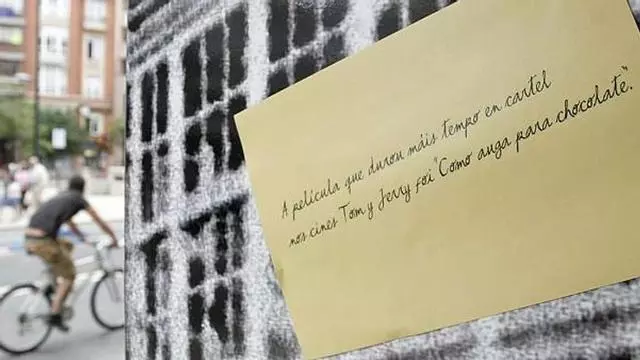 A película que durou máis tempo en cartel
nos cines Tom y Jerry foi "Como auga para chocolate".